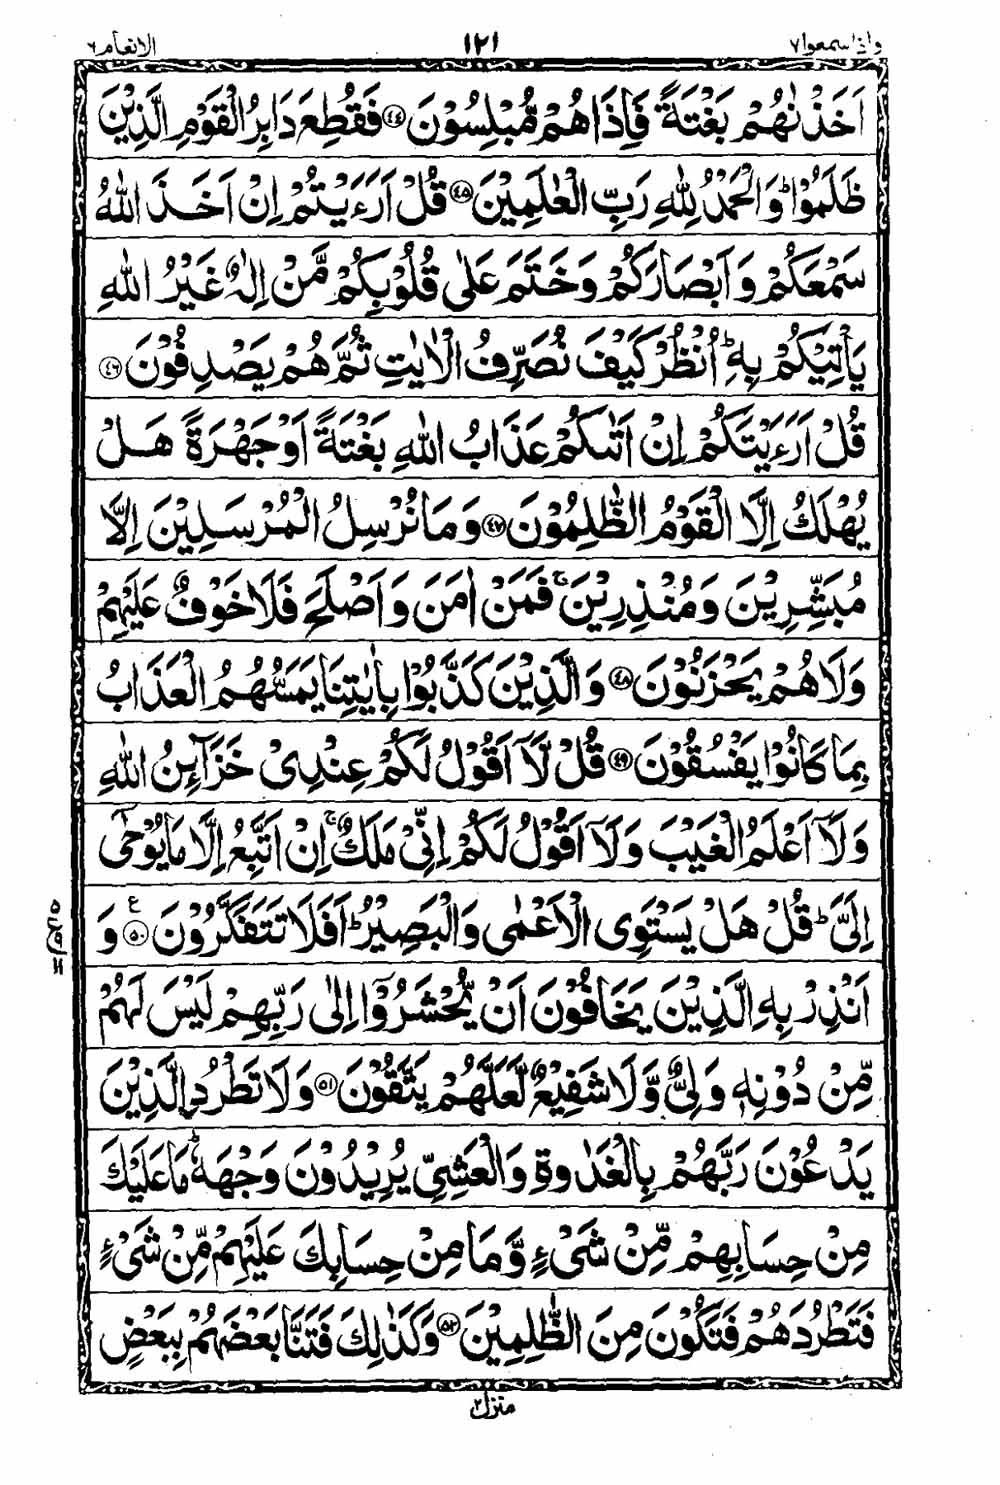 واذا سمعوا ٧ ١٢١ الانعام ٦
اَخَذْنٰهُمْ بَغْتَةً فَاِذَا هُمْ مُّبْلِسُوْنَ ﴿٤٤﴾ فَقُطِعَ دَابِرُ الْقَوْمِ الَّذِيْنَ
ظَلَمُوْا ؕ وَالْحَمْدُ لِلّٰهِ رَبِّ الْعٰلَمِيْنَ ﴿٤٥﴾ قُلْ اَرَءَيْتُمْ اِنْ اَخَذَ اللّٰهُ
سَمْعَكُمْ وَ اَبْصَارَكُمْ وَخَتَمَ عَلٰى قُلُوْبِكُمْ مَّنْ اِلٰهٌ غَيْرُ اللّٰهِ
يَاْتِيْكُمْ بِهٖ ؕ اُنْظُرْ كَيْفَ نُصَرِّفُ الْاٰيٰتِ ثُمَّ هُمْ يَصْدِفُوْنَ ﴿٤٦﴾
قُلْ اَرَءَيْتَكُمْ اِنْ اَتٰىكُمْ عَذَابُ اللّٰهِ بَغْتَةً اَوْ جَهْرَةً هَلْ
يُهْلَكُ اِلَّا الْقَوْمُ الظّٰلِمُوْنَ ﴿٤٧﴾ وَمَا نُرْسِلُ الْمُرْسَلِيْنَ اِلَّا
مُبَشِّرِيْنَ وَمُنْذِرِيْنَ ۚ فَمَنْ اٰمَنَ وَاَصْلَحَ فَلَا خَوْفٌ عَلَيْهِمْ
وَلَا هُمْ يَحْزَنُوْنَ ﴿٤٨﴾ وَالَّذِيْنَ كَذَّبُوْا بِاٰيٰتِنَا يَمَسُّهُمُ الْعَذَابُ
بِمَا كَانُوْا يَفْسُقُوْنَ ﴿٤٩﴾ قُلْ لَّآ اَقُوْلُ لَكُمْ عِنْدِىْ خَزَآئِنُ اللّٰهِ
وَلَآ اَعْلَمُ الْغَيْبَ وَلَآ اَقُوْلُ لَكُمْ اِنِّىْ مَلَكٌ ۚ اِنْ اَتَّبِعُ اِلَّا مَا يُوْحٰٓى
اِلَىَّ ؕ قُلْ هَلْ يَسْتَوِى الْاَعْمٰى وَالْبَصِيْرُ ؕ اَفَلَا تَتَفَكَّرُوْنَ ﴿٥٠﴾ ع وَ
اَنْذِرْ بِهِ الَّذِيْنَ يَخَافُوْنَ اَنْ يُّحْشَرُوْٓا اِلٰى رَبِّهِمْ لَيْسَ لَهُمْ
مِّنْ دُوْنِهٖ وَلِىٌّ وَّلَا شَفِيْعٌ لَّعَلَّهُمْ يَتَّقُوْنَ ﴿٥١﴾ وَلَا تَطْرُدِ الَّذِيْنَ
يَدْعُوْنَ رَبَّهُمْ بِالْغَدٰوةِ وَالْعَشِىِّ يُرِيْدُوْنَ وَجْهَهٗ ؕ مَا عَلَيْكَ
مِنْ حِسَابِهِمْ مِّنْ شَىْءٍ وَّمَا مِنْ حِسَابِكَ عَلَيْهِمْ مِّنْ شَىْءٍ
فَتَطْرُدَهُمْ فَتَكُوْنَ مِنَ الظّٰلِمِيْنَ ﴿٥٢﴾ وَكَذٰلِكَ فَتَنَّا بَعْضَهُمْ بِبَعْضٍ
منزل ٢